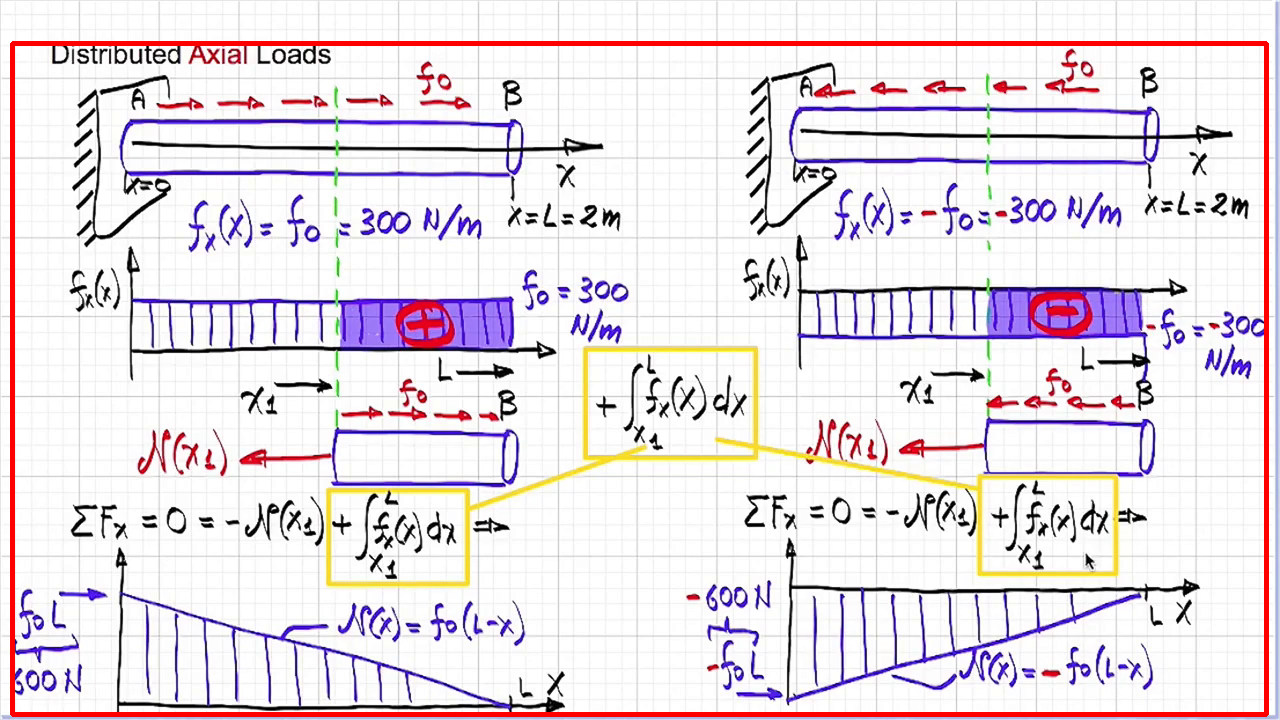 Distributed Axial Loads
A f₀ B
x=0 x
fₓ(x) = f₀ = 300 N/m x=L=2m
fₓ(x) f₀ = 300 N/m
L
x₁ f₀ B
N(x₁)
ΣFₓ = 0 = -N(x₁) + ∫ₓ₁ᴸ fₓ(x) dx ⇒
f₀L
600 N
N(x) = f₀(L-x)
L x
+ ∫ₓ₁ᴸ fₓ(x) dx
A f₀ B
x=0 x
fₓ(x) = -f₀ = -300 N/m x=L=2m
fₓ(x) -f₀ = -300 N/m
L
x₁ f₀ B
N(x₁)
ΣFₓ = 0 = -N(x₁) + ∫ₓ₁ᴸ fₓ(x) dx ⇒
-600 N
-f₀L
L x
N(x) = -f₀(L-x)